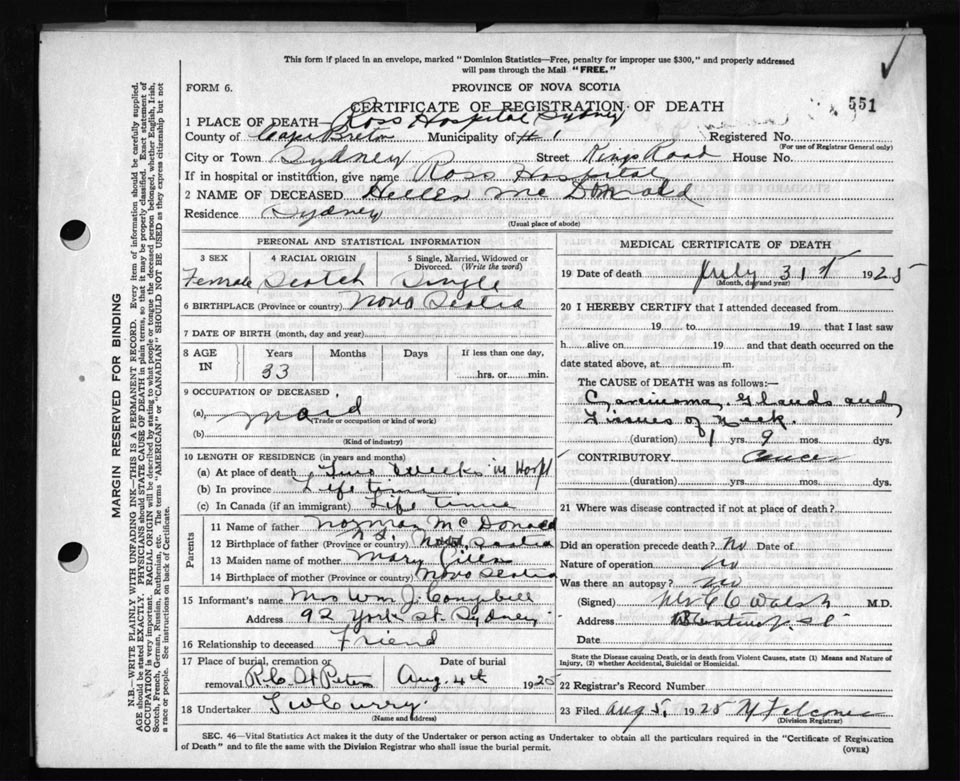 This form if placed in an envelope, marked "Dominion Statistics—Free, penalty for improper use $300," and properly addressed
will pass through the Mail "FREE."
FORM 6.
PROVINCE OF NOVA SCOTIA
551
CERTIFICATE OF REGISTRATION OF DEATH
1 PLACE OF DEATH Ross Hospital Sydney
County of Cape Breton Municipality of # 1 Registered No.
(For use of Registrar General only)
City or Town Sydney Street Kings Road House No.
If in hospital or institution, give name Ross Hospital
2 NAME OF DECEASED Hellen McDonald
Residence Sydney
(Usual place of abode)
PERSONAL AND STATISTICAL INFORMATION
3 SEX 4 RACIAL ORIGIN 5 Single, Married, Widowed or Divorced. (Write the word)
Female Scotch Single
6 BIRTHPLACE (Province or Country) Nova Scotia
7 DATE OF BIRTH (month, day and year)
8 AGE IN Years Months Days If less than one day,
33 hrs. or min.
9 OCCUPATION OF DECEASED
(a) Maid
(Trade or occupation or kind of work)
(b)
(Kind of industry)
10 LENGTH OF RESIDENCE (in years and months)
(a) At place of death Two Weeks in Hospt
(b) In province Life time
(c) In Canada (if an immigrant) Life time
Parents
11 Name of father Norman McDonald
12 Birthplace of father (Province or country) N.S. Nova Scotia
13 Maiden name of mother Mary
14 Birthplace of mother (Province or country) Nova Scotia
15 Informant's name Mrs Wm J. Campbell
Address 92 York St. Sydney
16 Relationship to deceased Friend
17 Place of burial, cremation or Date of burial
removal R.C. St Peters Aug. 4th 1925
18 Undertaker
(Name and address)
MEDICAL CERTIFICATE OF DEATH
19 Date of death July 31st 1925
(Month, day and year)
20 I HEREBY CERTIFY that I attended deceased from
19 to 19 that I last saw
h alive on 19 and that death occurred on the
date stated above, at m.
The CAUSE of DEATH was as follows:—
Carcinoma, Glands and
Tissues of Neck.
(duration) 1 yrs. 9 mos. dys.
CONTRIBUTORY Cancer
(duration) yrs. mos. dys.
21 Where was disease contracted if not at place of death?
Did an operation precede death? No Date of
Nature of operation no
Was there an autopsy? no
(Signed) Walsh M.D.
Address
Date
State the Disease causing Death, or in death from Violent Causes, state (1) Means and Nature of
Injury, (2) whether Accidental, Suicidal or Homicidal.
22 Registrar's Record Number
23 Filed Aug 5, 1925
(Division Registrar)
SEC. 46—Vital Statistics Act makes it the duty of the Undertaker or person acting as Undertaker to obtain all the particulars required in the "Certificate of Registration
of Death" and to file the same with the Division Registrar who shall issue the burial permit. (OVER)
MARGIN RESERVED FOR BINDING
N.B.—WRITE PLAINLY WITH UNFADING INK—THIS IS A PERMANENT RECORD. Every item of information should be carefully supplied.
AGE should be stated EXACTLY. PHYSICIANS should STATE CAUSE OF DEATH in plain terms, so that it may be properly classified. Exact statement of
OCCUPATION is very important. RACIAL ORIGIN will be described by stating to what people or tongue the deceased person belonged, whether English, Irish,
Scotch, French, German, Russian, Ruthenian, etc. The terms "AMERICAN" or "CANADIAN" SHOULD NOT BE USED as they express citizenship but not
a race or people. See instructions on back of Certificate.